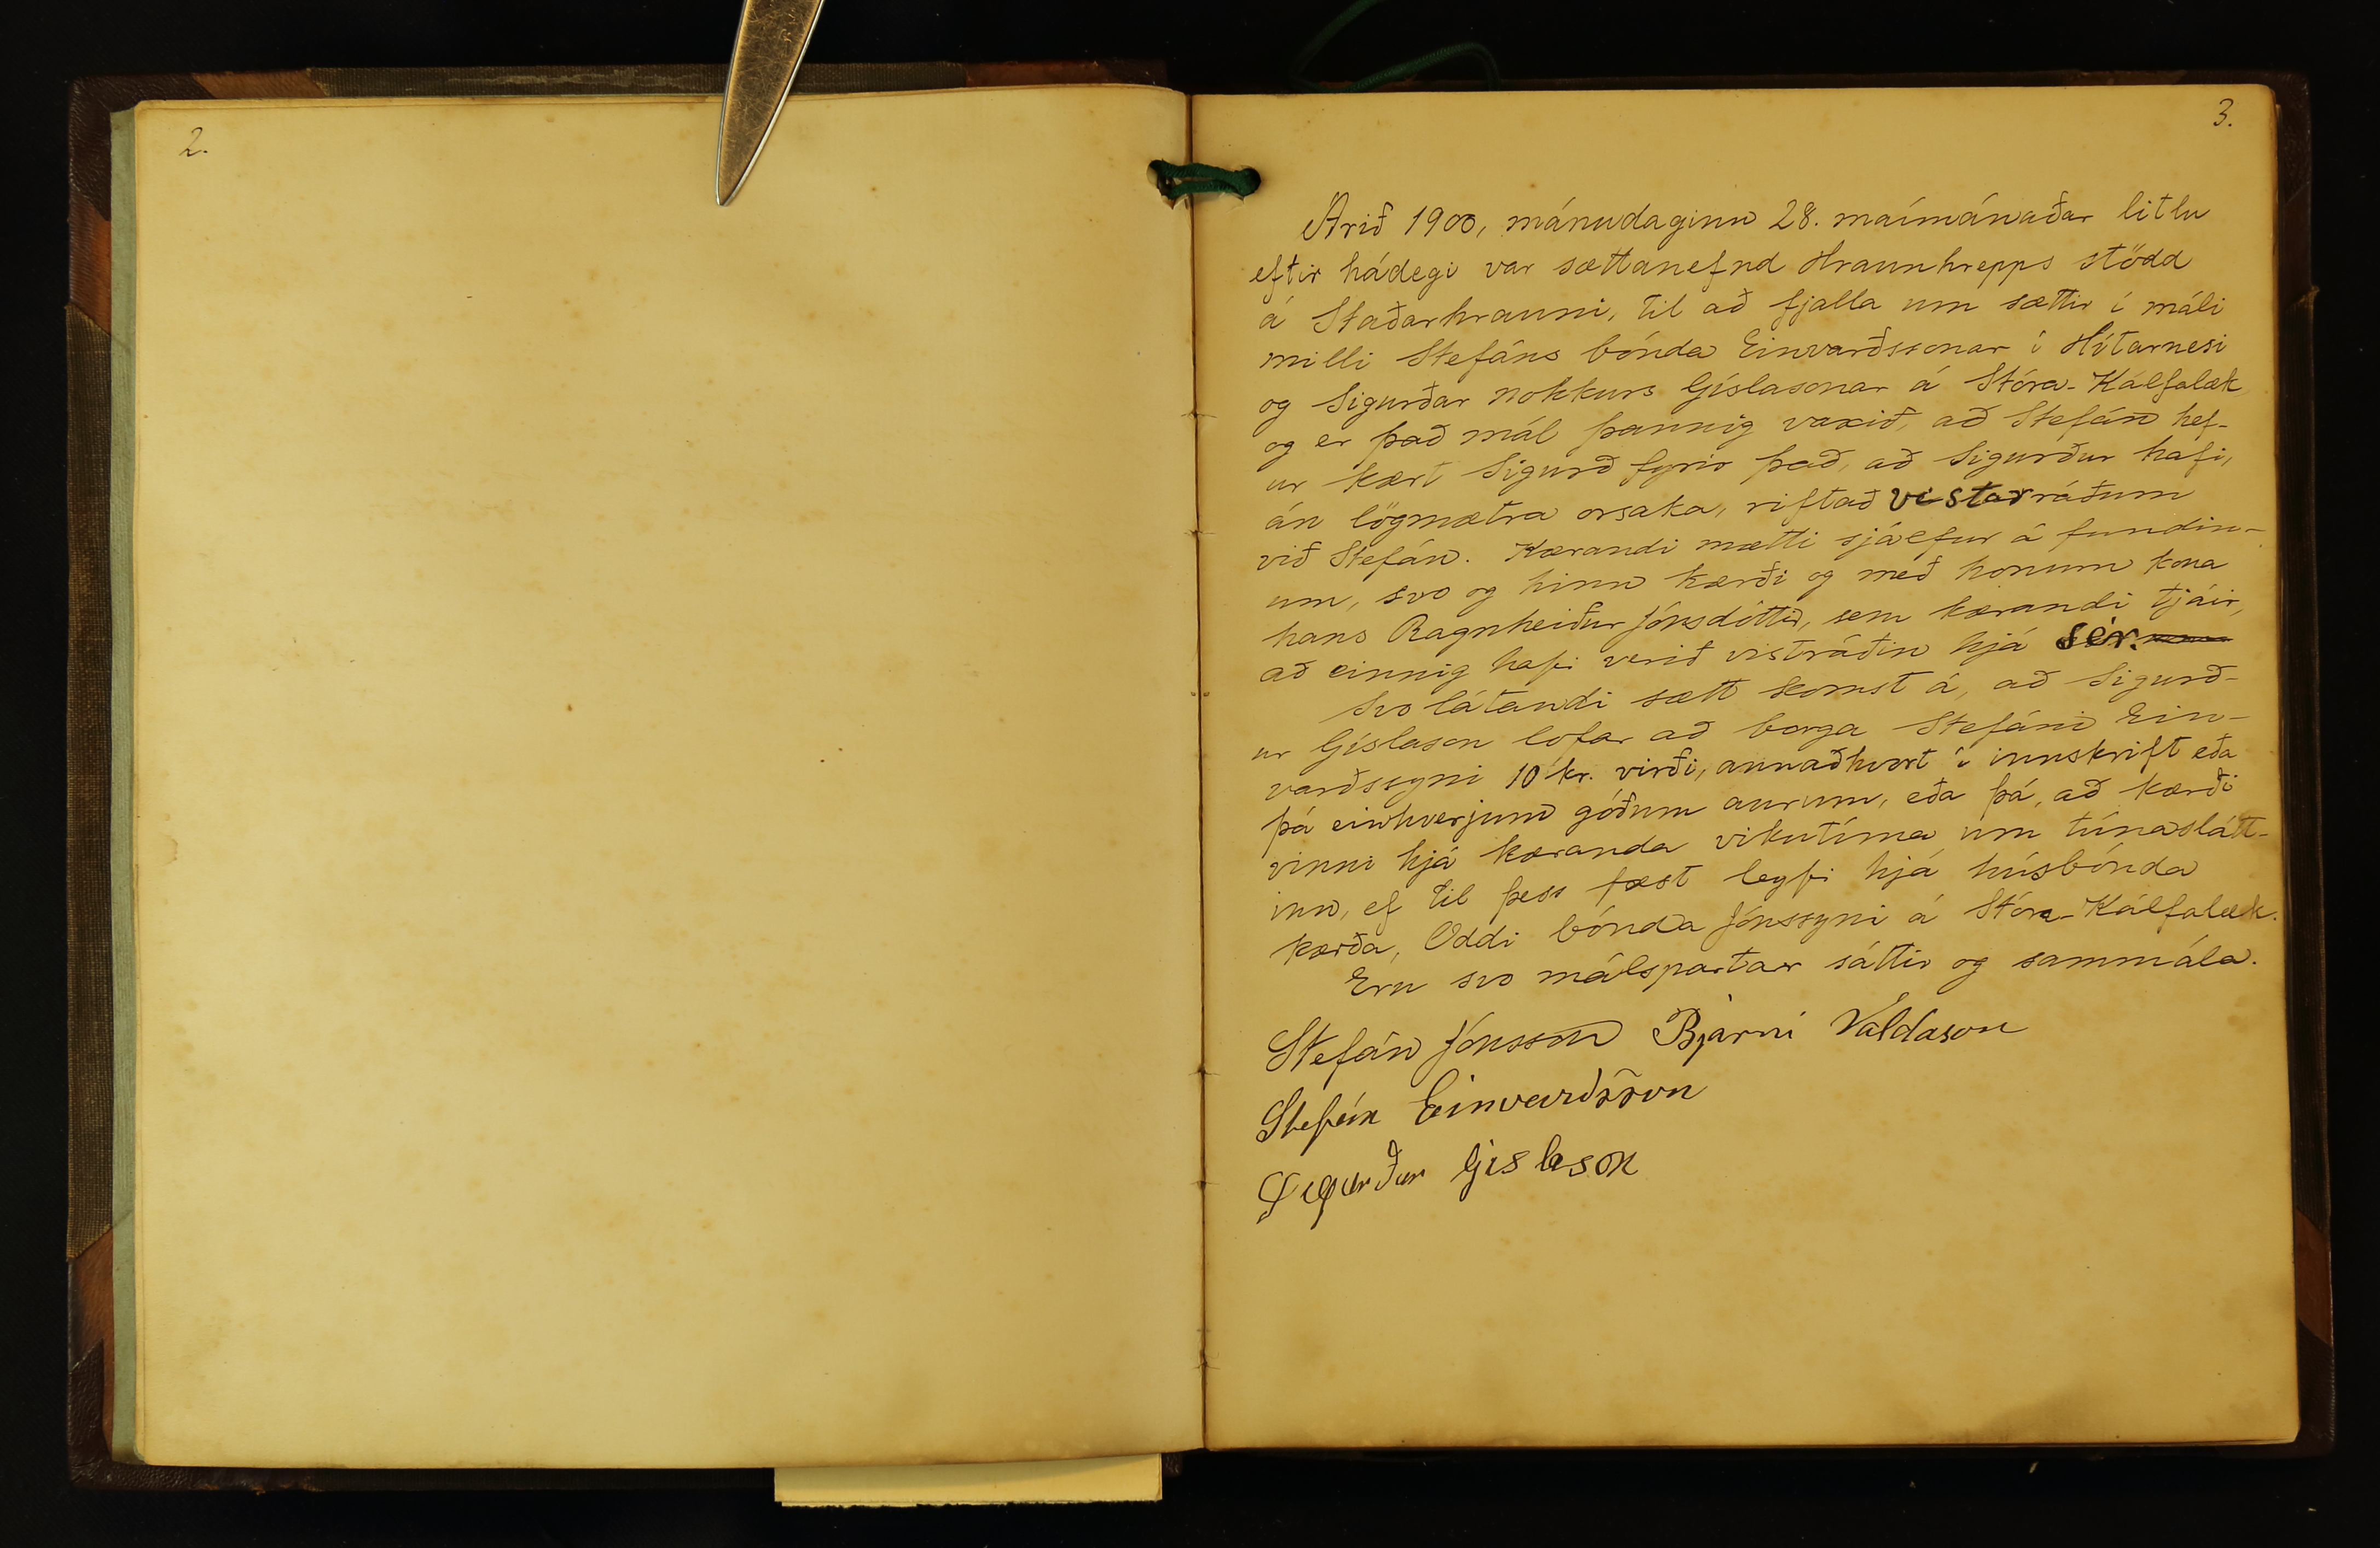 2.
3.
Árið 1900, mánudaginn 28. maímánaðar litlu
eftir hádegi var sættanefnd Hraunhrepps stödd
á Staðarhrauni, til að fjalla um sættir í máli
milli Stefáns bónda Einvarðssonar í Hítarnesi
og Sigurðar nokkurs Gíslasonar á Stóra-Kálfalæk
og er það mál þannig vaxið, að Stefán hef-
ur kært Sigurð fyrir það, að Sigurður hafi,
án lögmætra orsaka, riftað vistarráðum
við Stefán. Kærandi mætti sjálfur á fundin-
um, svo og hinn kærði og með honum kona
hans Ragnheiður Jónsdóttir, sem kærandi tjáir,
að einnig hafi verið vistráðin hjá sér.
Svo látandi sætt komst á, að Sigurð-
ur Gíslason lofar að borga Stefáni Ein-
varðssyni 10 kr. virði, annaðhvort í innskrift eða
þá einhverjum góðum aurum, eða þá, að kærði
vinni hjá kæranda vikutíma um túnaslátt-
inn, ef til þess fæst leyfi hjá húsbónda
kærða, Oddi bónda Jónssyni á Stóra-Kálfalæk.
Eru svo málspartar sáttir og sammála.
Stefán Jónsson Bjarni Valdason
Stefán Einvarðsson
Sigurður Gislason